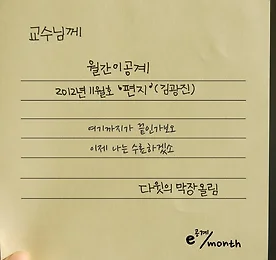 교수님께
월간이공계
2012년 11월호 "편지" (김광진)
여기까지가 끝인가보오
이제 나는 수료하겠소
다윗의 막장올림
e공계/month